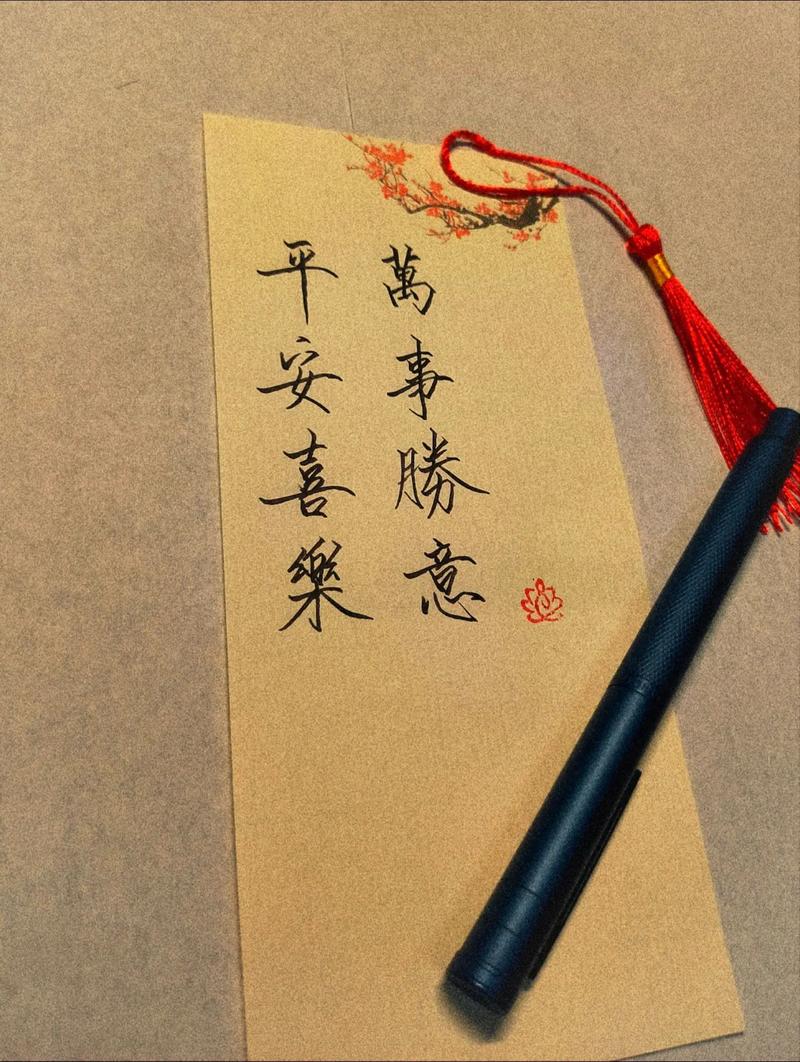 萬事勝意
平安喜樂